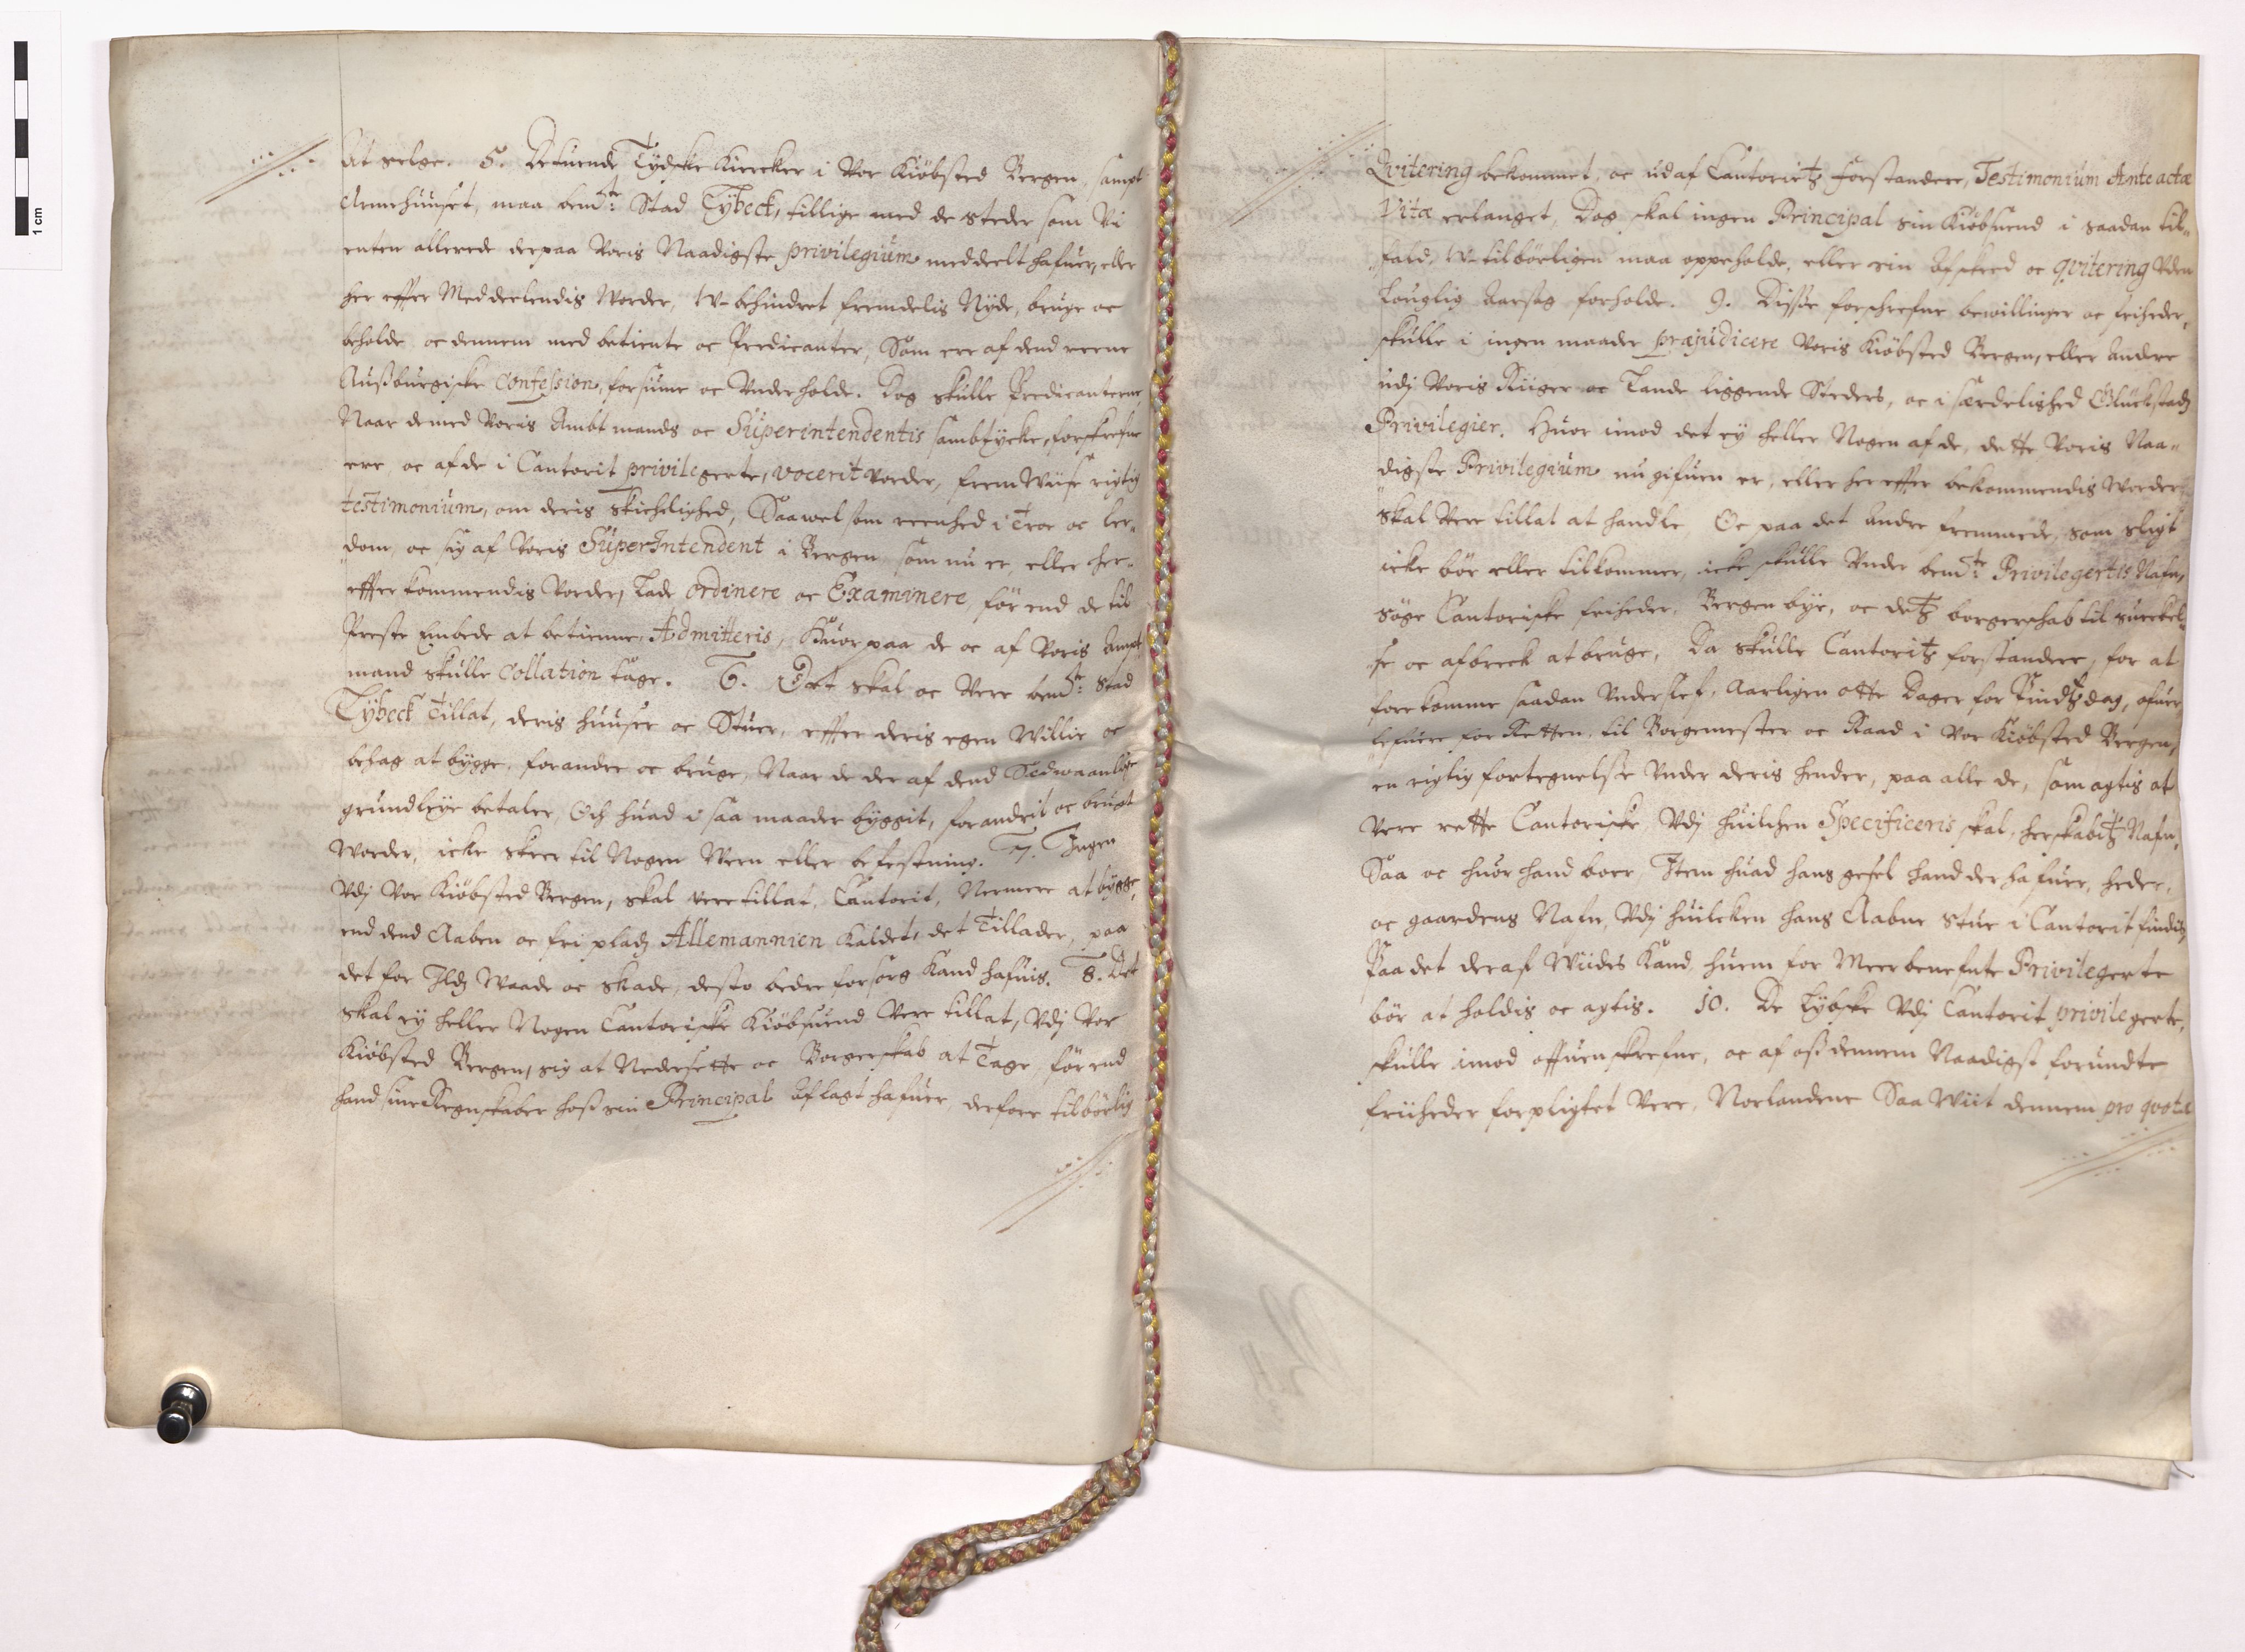 At selge. 5. De tuende Tydske Kiercker i Vor Kiöbsted Bergen, sampt
Armehuuset, maa bem:te Stad Lybeck, tillige med de steder som Vi
enten allerede derpaa Voris Naadigste privilegium meddeelt hafuer, eller
her effter Meddeelendis Worder, W-behindret fremdelis Nyde, bruge oc
beholde oc dennem med betiente oc Predicanter, Som ere af dend reene
Außburgiske Confession, forsiune oc Vnderholde. Dog skulle Predicanterne
Naar de med Voris Ambtmands oc Superintendentis sambtycke, forskrefne
ere, oc af de i Cantorit privilegerte, vocerit vorder, frem Wiise rigtig
testimonium, om deris Skichelighed, Saawel som reenhed i Troe oc ler-
dom, oc sig af Voris SuperIntendent i Bergen som nu er, eller her-
effter kommendis Vorder, Lade ordinere oc Examinere, för end de til
Preste Embede at betienne, Admitteris, Huor paa de oc af Voris Ampt-
mand skulle Collation tage. 6. Det skal oc Vere bem:te Stad
Lybeck Tillat, deris huuser oc Stuer, effter deris egen Willie oc
behag at bygge, forandre oc bruge, Naar de der af dend Sedwaanlige
grundleye betaler, Och huad i saa maader byggit, forandrit oc brugt
Worder, icke skeer til Nogen Wern eller befestning. 7. Ingen
Vdj Vor Kiöbsted Bergen, skal vere tillat, Cantorit, Nermere at bygge,
end dend Aaben oc fri pladz Allemannien Kaldet, det Tillader, paa
det for Ildz Waade oc Skade, desto bedre forsorg Kand hafuis. 8. Det
skal ey heller Nogen Cantoriske Kiöbsuend Vere tillat, Vdj Vor
Kiöbsted Bergen, sig at Nedersette oc Borgerskab at Tage, för end
hand sine Regnskaber hoß sin Principal Aflagt hafuer, derfore tilbörlig
Qvitering bekommet, oc ud af Cantoritz forstandere, Testimonium Ante actæ
Vitæ erlanget, Dog skal ingen Principal sin Kiöbsuend i saadan til-
fald, W-tilbörligen maa oppeholde, eller sin Afskeed oc qvitering Vden
Louglig Aarsag forholde. 9. Disse forschrefne bewillinger oc friheder,
skulle i ingen maader præjudicere Voris Kiöbsted Bergen, eller Andre
udj Voris Riiger oc Lande liggende Steders, oc i særdelished Glückstadz
Privilegier. Huor imod det ey heller Nogen af de, dette Voris Naa-
digste Privilegium nu gifuen er, eller her effter bekommendis Worder
skal Vere tillat at handle, Oc paa det Andre fremmede, som sligt
icke bör eller tilkommer, icke skulle Vnder bem:te Privilegertis Nafn,
söge Cantoriske friheder, Bergen bye, oc detz borgerschab til sueckel-
se oc afbreck at bruge, Da skulle Cantoritz forstandere, for at
forekomme saadan Vnderslef, Aarligen otte Dager for Pindtzdag, ofuer-
lefuere for Retten, til Borgemester oc Raad i Vor Kiöbsted Bergen,
en rigtig fortegnelse Vnder deris hender, paa alle de, som agtis at
Vere rette Cantoriske, Vdj huilchen Specificeris skal, herskabitz Nafn,
Saa oc huor hand boer, Item huad hans gesel hand der hafuer, heder,
oc gaardens Nafn, Vdj huilcken hans Aabne Stue i Cantorit findis
Paa det der af Wiides Kand, huem for Meerbenefnte Privilegerte
bör at holdis oc agtis. 10. De Lybske Vdj Cantorit privilegerte,
skulle imod offuenskrefne, oc af oß dennem Naadigst forundte
friiheder forpligtet Vere, Norlandene Saa Wiit dennem pro qvota